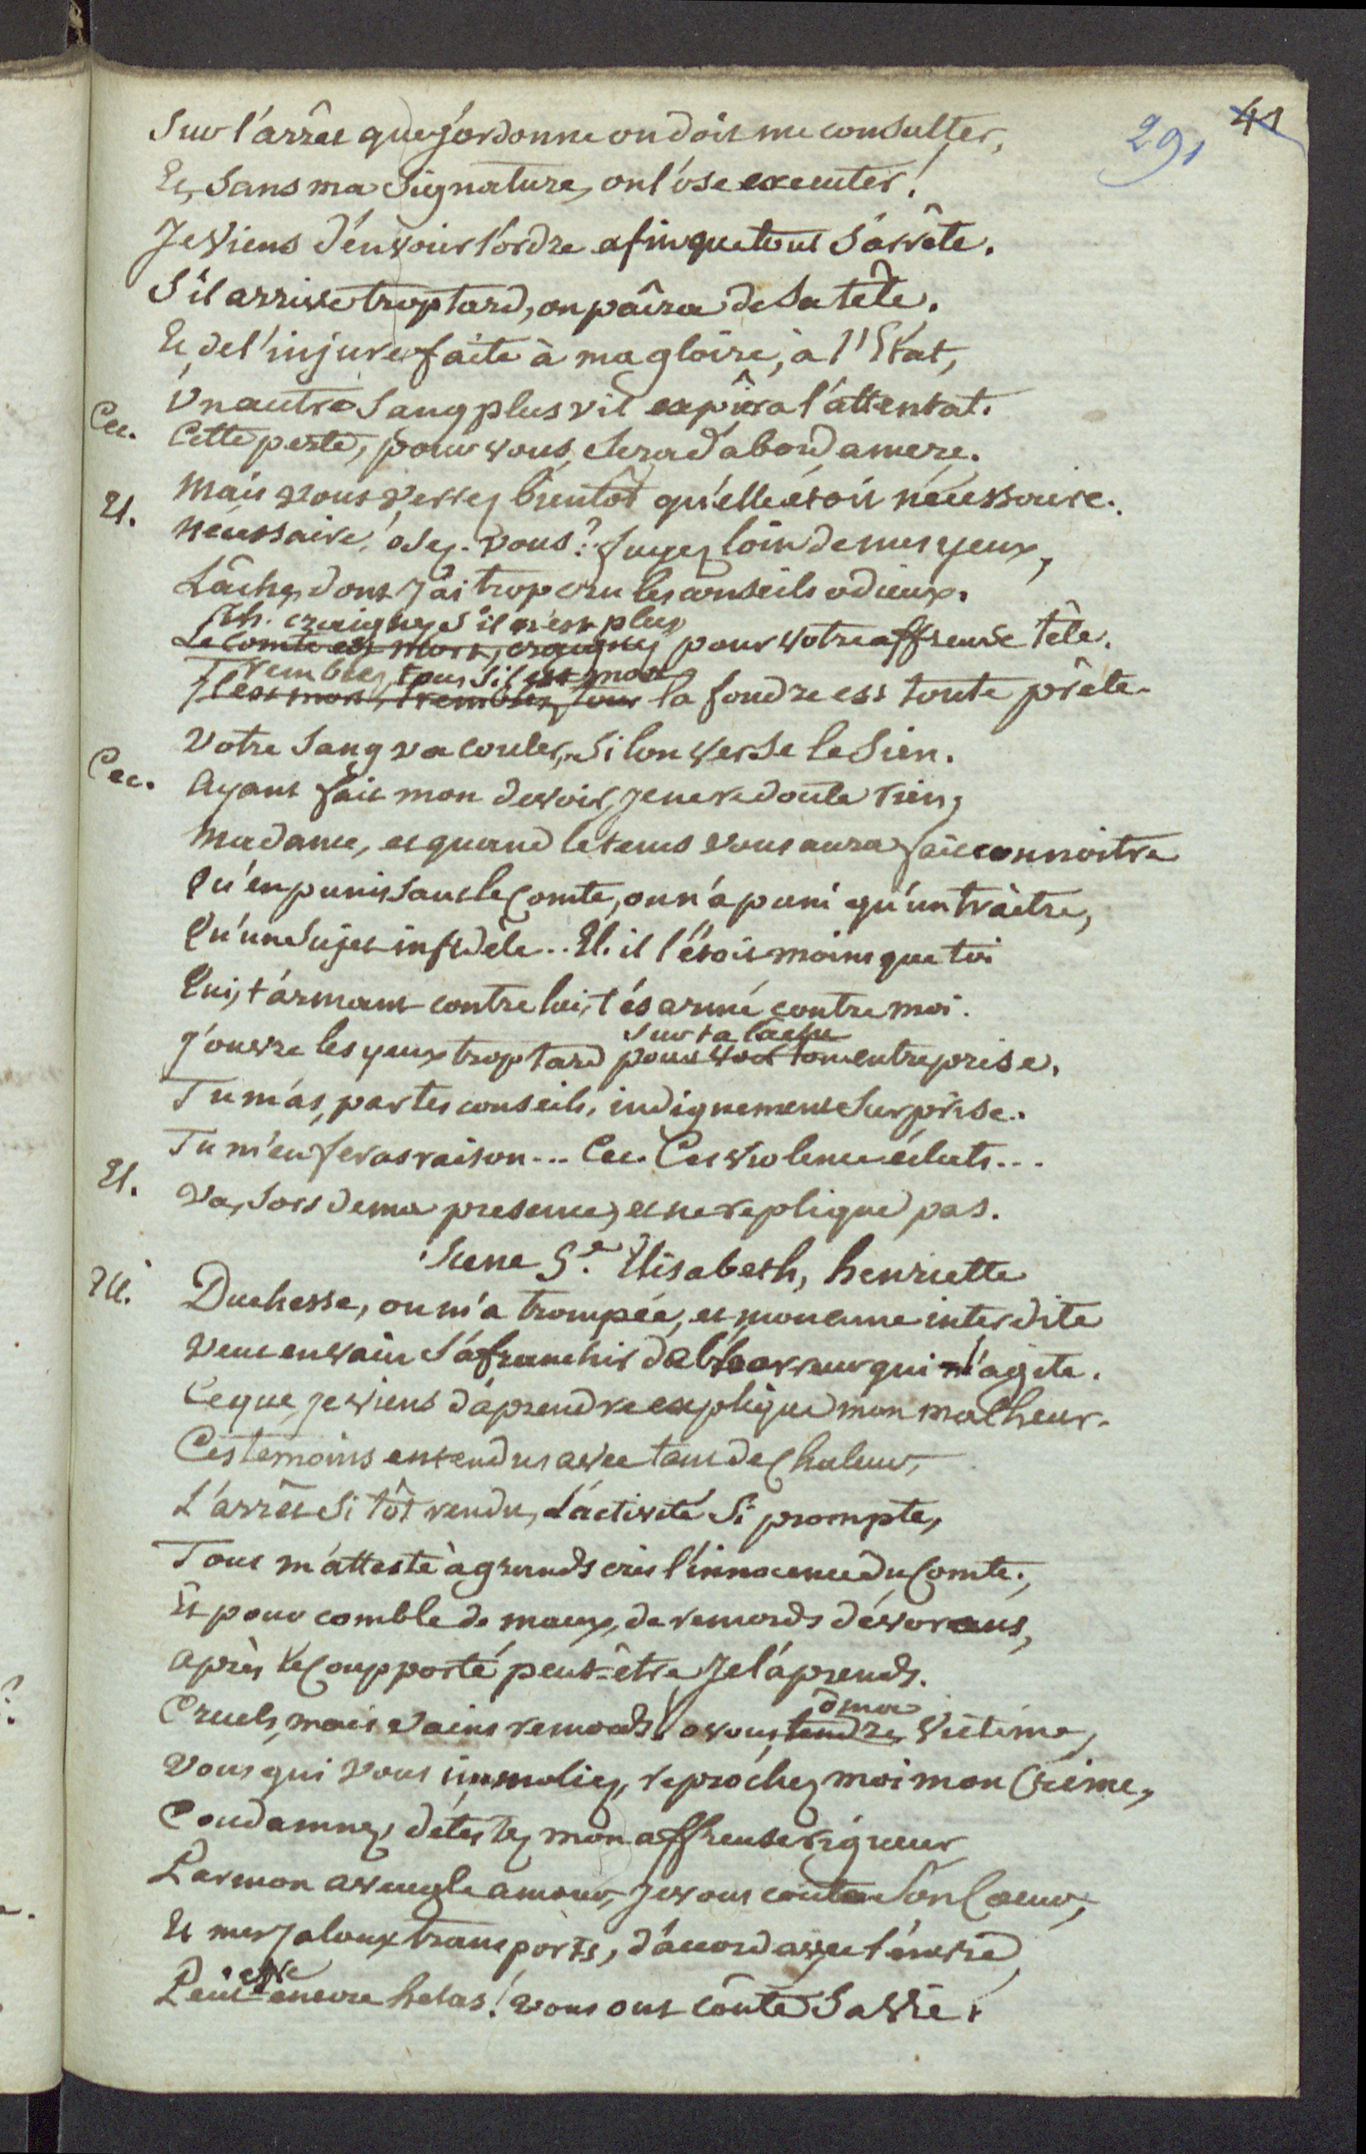 41
291
Sur l'arrêt que j'ordonne on doit me consulter,
Et, sans ma signature, on l'ose executer!
Je viens d'envoier l'ordre afin que tout s'arrête.
S'il arrive trop tard, on païra de sa tête.
Et, de l'injure faite à ma gloire, à l'Etat,
Un autre sang plus vil expîra l'attentat.
Cec. Cette perte, pour vous, sera d'abord amere.
Mais vous verrez bientôt qu'elle étoit nécessaire.
El. Nécessaire! osez-vous? fuyez loin de mes yeux,
Lâche, dont j'ai trop cru les conseils odieux.
Ah. craignez s'il n'est plus
Le Comte est mort, craignez pour votre affreuse tête.
Tremblez tous s'il est mort
Il est mort, tremblez, tous la foudre est toute prête.
Votre sang va couler, si l'on verse le sien.
Cec. Ayant fait mon devoir, je ne redoute rien,
Madame, et quand le tems vous aura fait connoitre
Qu'en punissant le Comte, on n'a puni qu'un traitre,
Qu'un sujet infidèle.. El. il l'étoit moins que toi
Qui, t'armant contre lui, t'és armé contre moi.
sur ta lache
J'ouvre les yeux trop tard pour voir ton entreprise.
Tu m'as, par tes conseils, indignement surprise.
Tu m'en feras raison... Cec. Ces violence éclats...
El. Va, sors de ma presence, et ne replique pas.
Scene 5.e Elisabeth, henriette
El. Duchesse, on m'a trompée, et mon ame interdite
Veut en vain s'afranchir de l'horreur qui l'agite.
Ce que je viens d'aprendre explique mon malheur.
Ces temoins entendus avec tant de chaleur,
L'arrêt si tôt rendu, l'activité si prompte,
Tout m'atteste à grands cris l'innocence du Comte,
Et pour comble de maux, de remords dévorans,
Après le coup porté peut-être, je l'aprends.
ô ma
Cruels, mais vains remords! o vous, tendre victime,
Vous qui vous immoliez, reprochez moi mon crime,
Condamnez, détestez mon affreuse rigueur
Par mon aveugle amour, je vous coute son Coeur,
Et mes jaloux transports, d'accord avec l'envie,
être
Peut-encore helas! vous ont coûté sa vie.